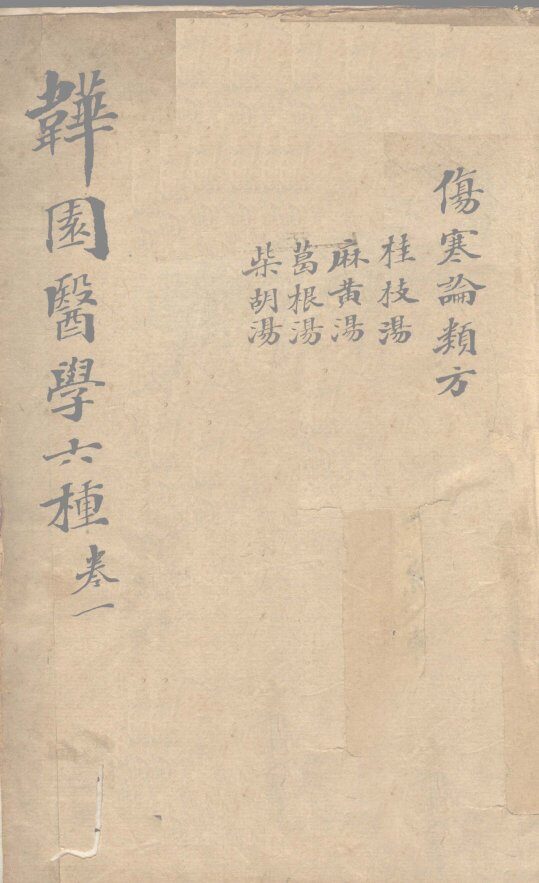 傷寒論類方
桂枝湯
麻黄湯
葛根湯
柴胡湯
韡園醫學六種
卷一